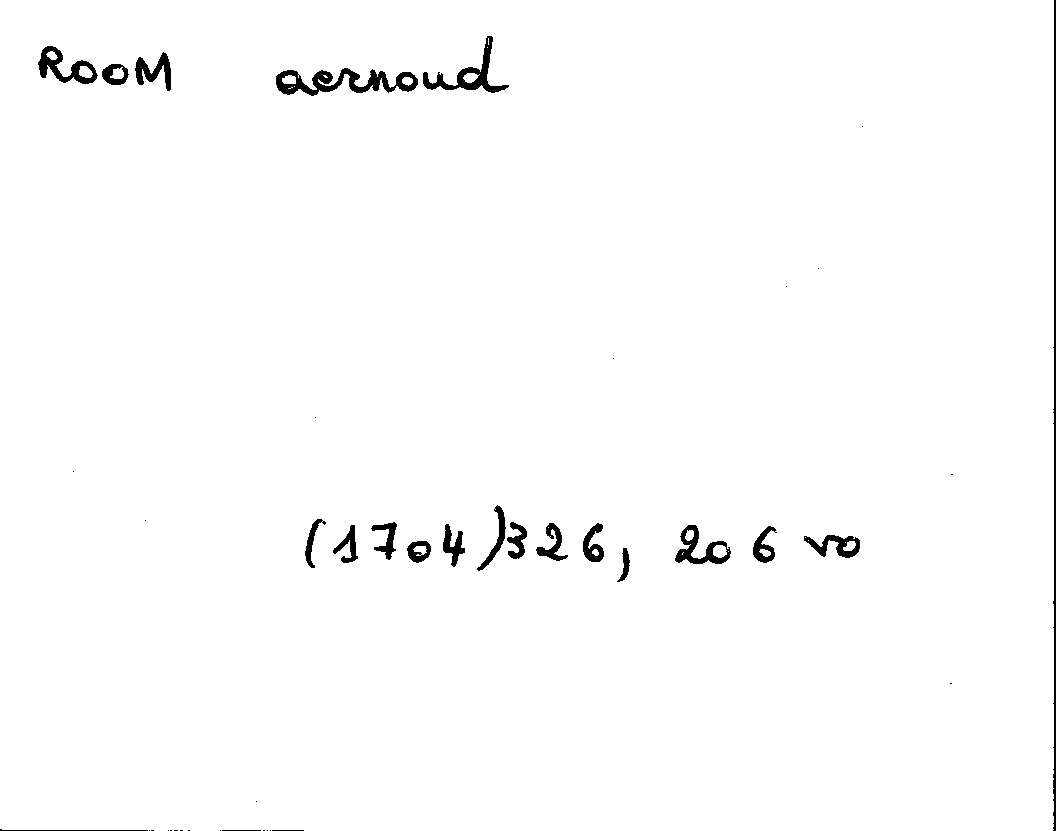 ROOM aernoud
(1704)326, 206 vo